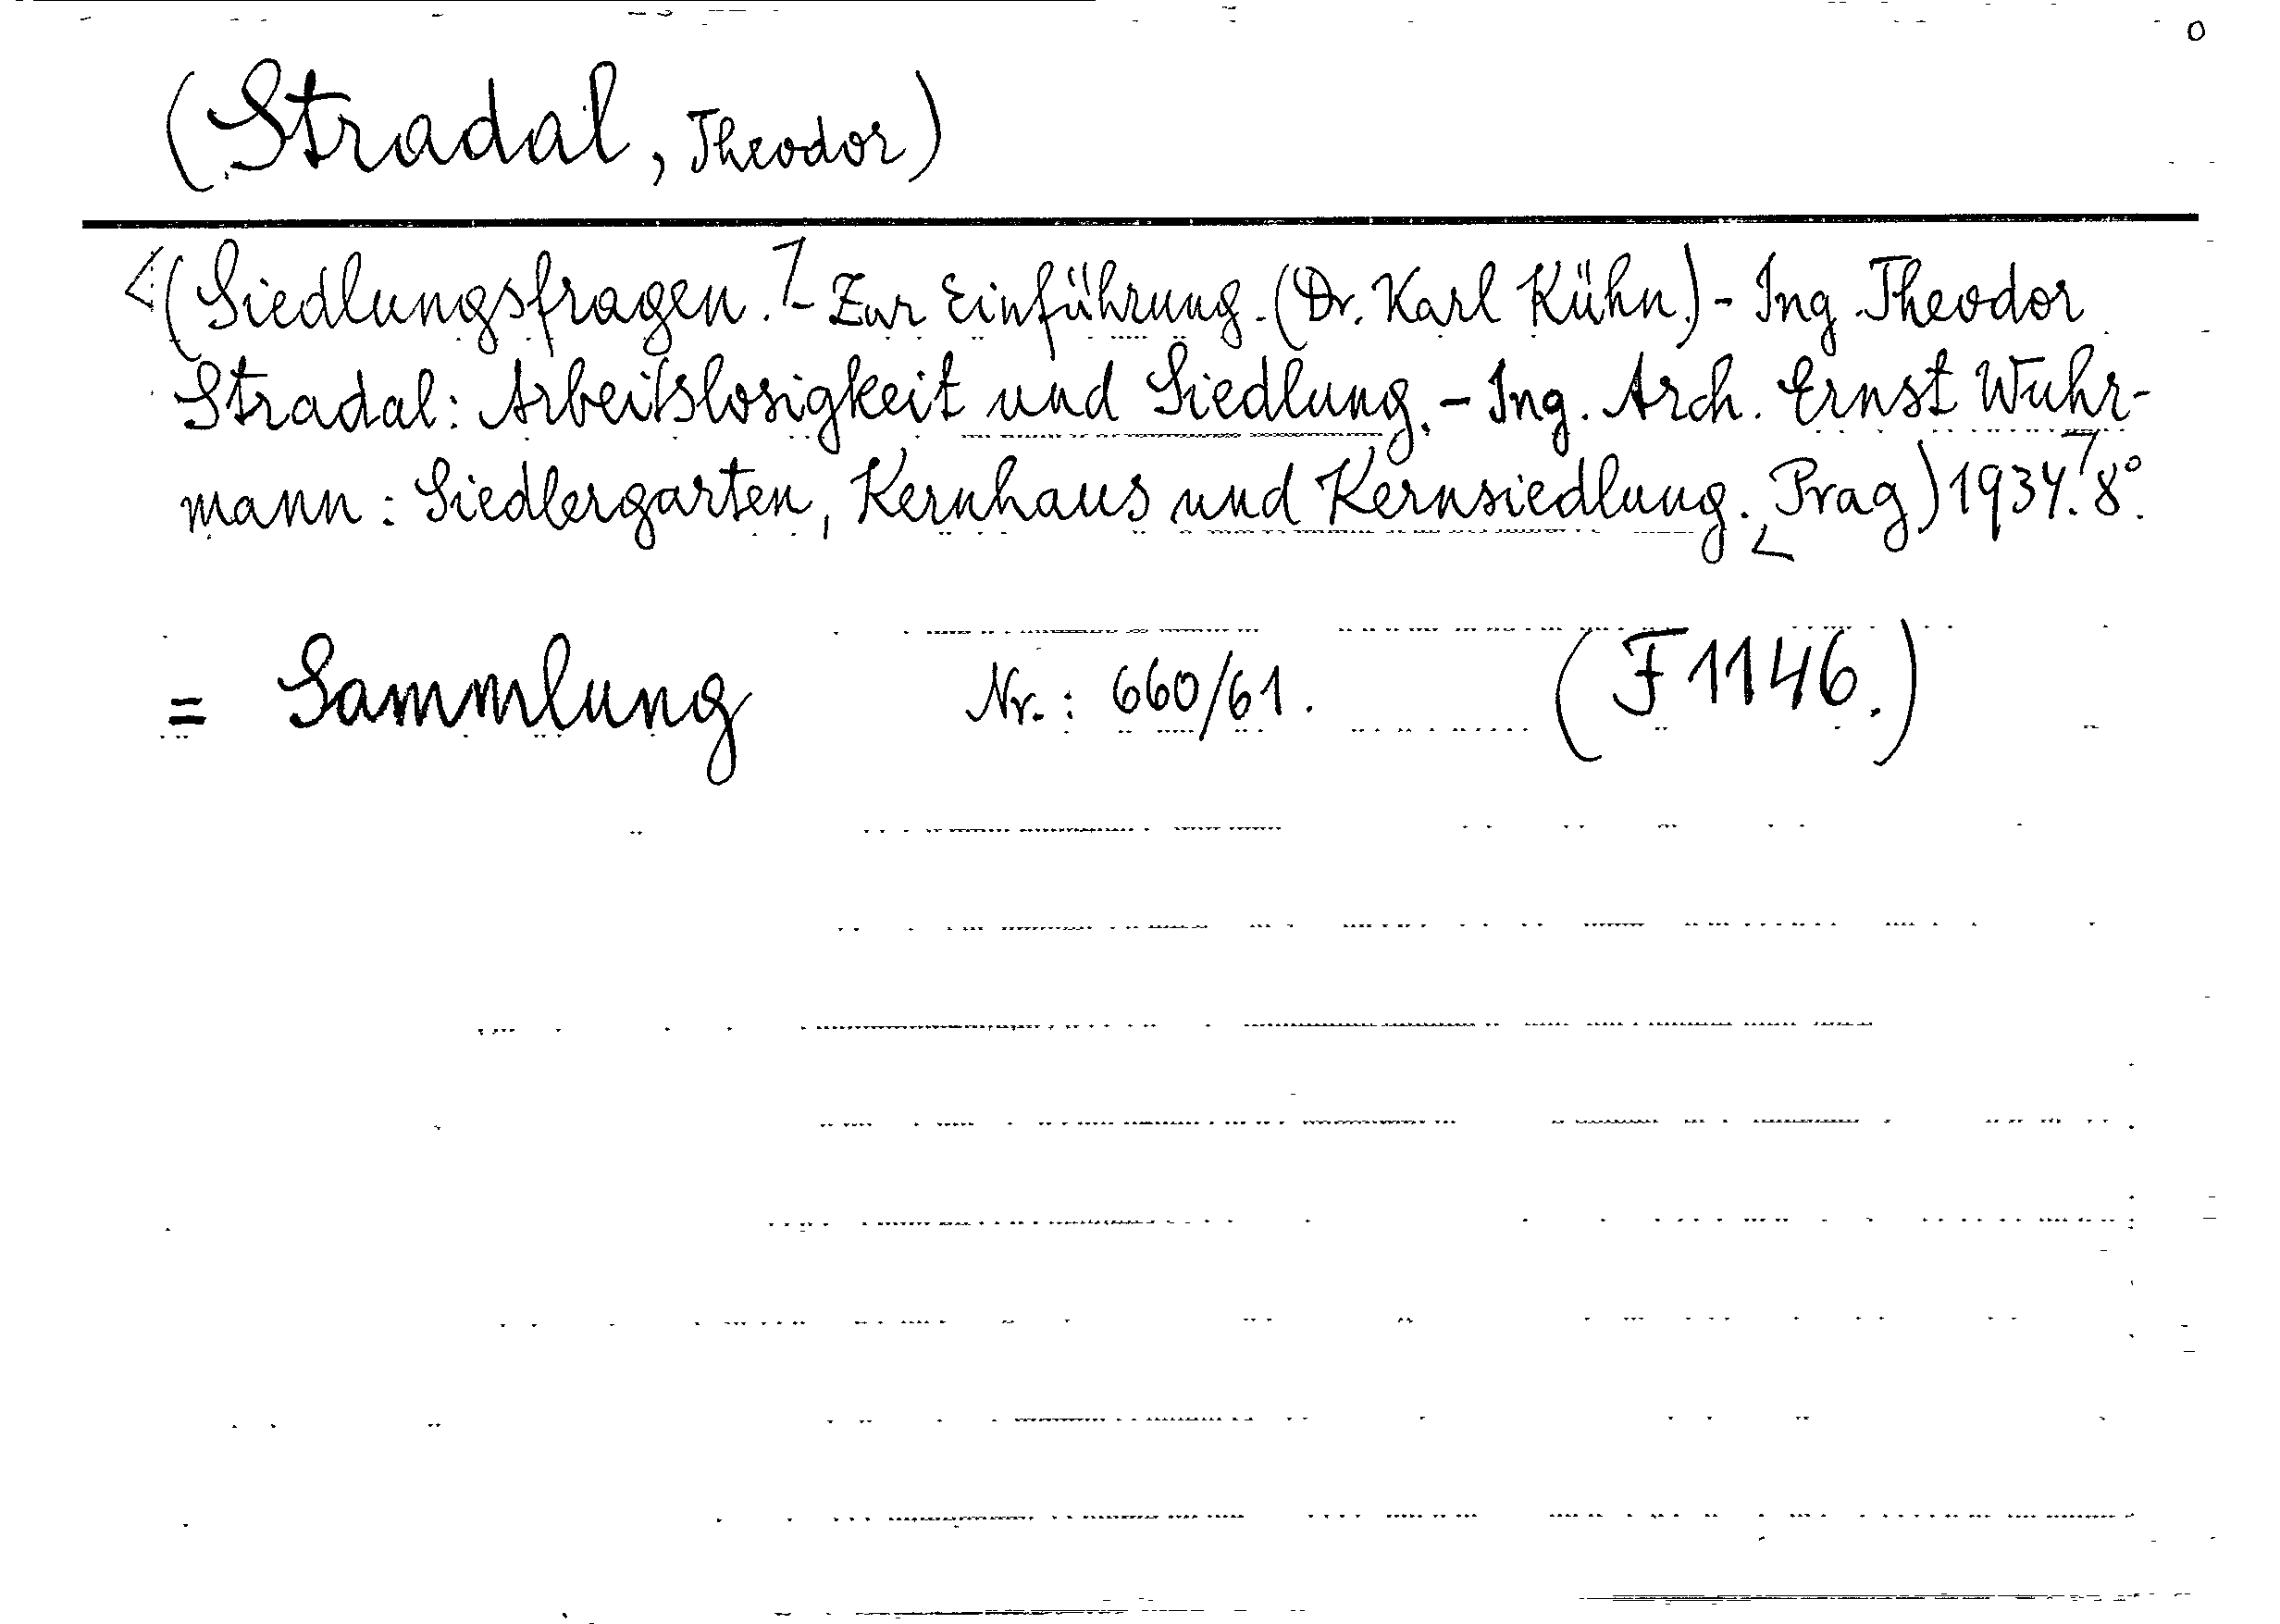 0
(Stradal, Theodor)
<(Siedlungsfragen.7- Zur Einführung. (Dr. Karl Kühn.) - Ing. Theodor
Stradal: Arbeitslosigkeit und Siedlung. - Ing. Arch. Ernst Wuhr-
mann: Siedlergarten, Kernhaus und Kernsiedlung. <Prag) 1934.7 8°.
= Sammlung Nr.: 660/61. (F 1146.)